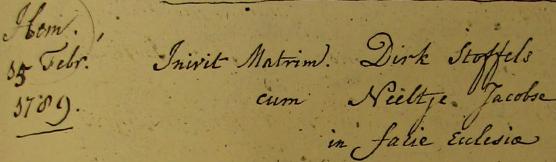 Hem.
15 Febr.
1789.
Inivit Matrim. Dirk Stoffels
cum Néeltje Jacobse
in facie Eclesiæ